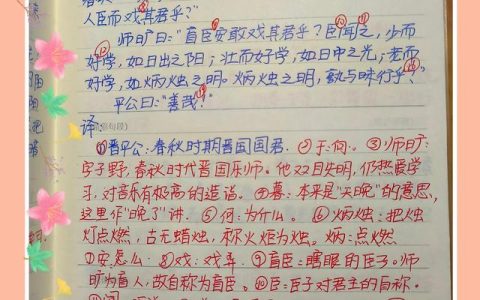 人臣而戏其君乎?"
师旷曰:"盲臣安敢戏其君乎?臣闻之,少而
好学,如日出之阳;壮而好学,如日中之光;老而
好学,如炳烛之明。炳烛之明,孰与昧行乎?"
平公曰:"善哉!"
译:
①晋平公:春秋时期晋国国君.②于:向.③师旷:
字子野,春秋时代晋国乐师。他双目失明,仍热爱学
习,对音乐有极高的造诣。④暮:本来是"天晚"的意思,
这里作"晚了"讲.⑤何:为什么。⑥炳烛:把烛
灯点燃,古无蜡烛,称火炬为烛。炳:点燃
⑦安:怎么.⑧戏:戏弄.⑨盲臣:瞎眼的臣子。师
旷为盲人,故自称为盲臣。⑩臣:臣子对君主的自称.